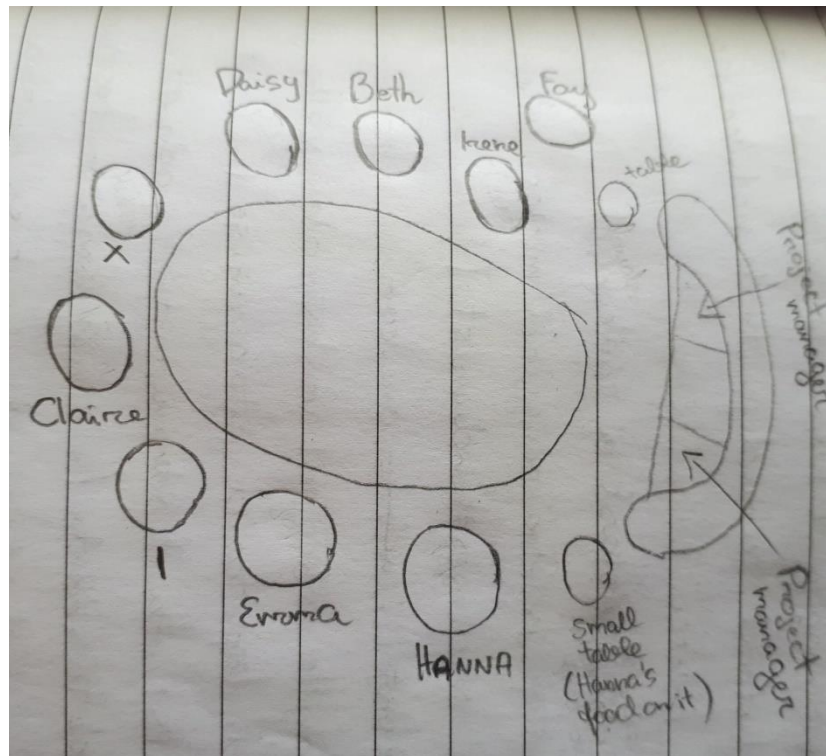 Daisy
Beth
Fay
Irene
table
X
Project
manager
Claire
I
Emma
HANNA
small
table
(Hanna's
food on it)
Project
manager